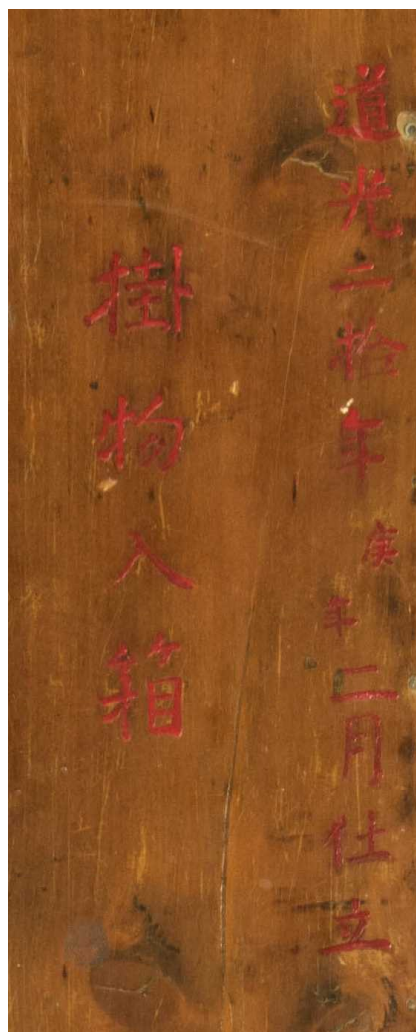 道光二拾年庚年二月仕立
掛物入箱